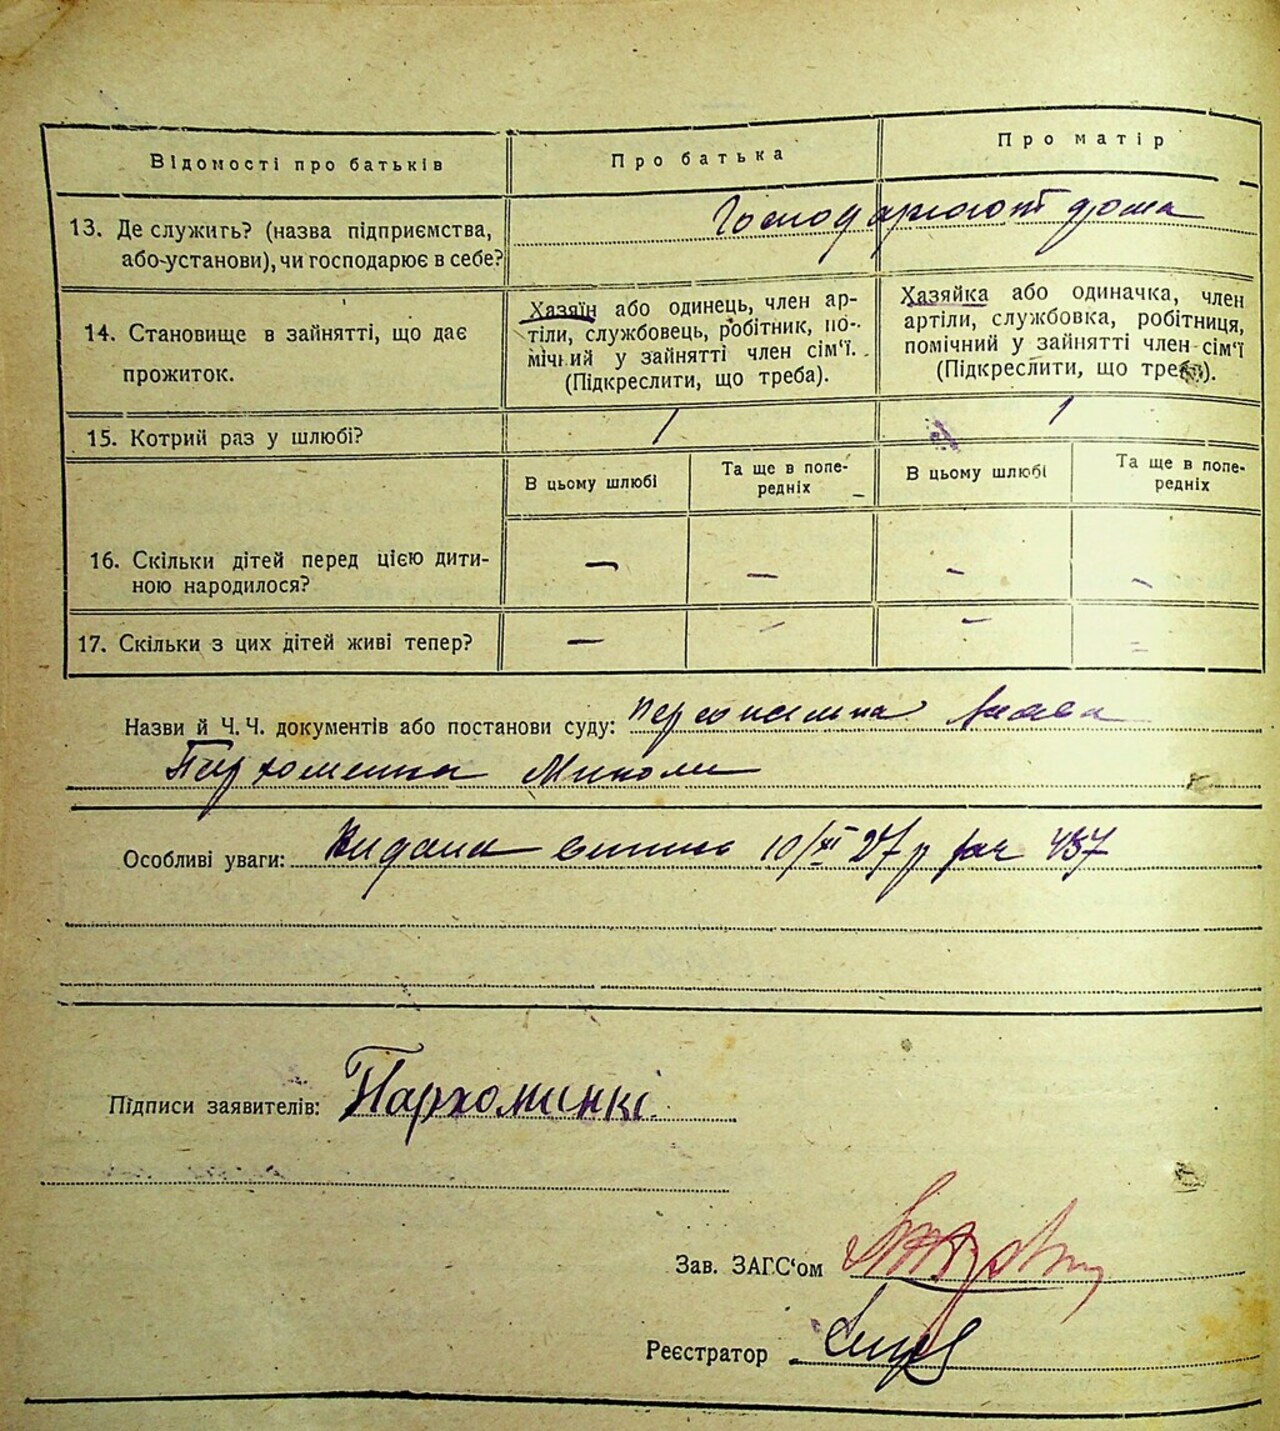 Відомості про батьків
Про батька
Про матір
13. Де служить? (назва підприємства,
або-установи), чи господарює в себе?
Господарюють дома
14. Становище в зайнятті, що дає
прожиток.
Хазяїн або одинець, член ар-
тіли, службовець, робітник, по-
мічний у зайнятті член сім'ї.
(Підкреслити, що треба).
Хазяйка або одиначка, член
артіли, службовка, робітниця,
помічний у зайнятті член сім'ї
(Підкреслити, що треба).
15. Котрий раз у шлюбі?
1
1
В цьому шлюбі
Та ще в попе-
редніх
В цьому шлюбі
Та ще в попе-
редніх
16. Скільки дітей перед цією дити-
ною народилося?
—
—
—
—
17. Скільки з цих дітей живі тепер?
—
—
—
—
Назви й Ч. Ч. документів або постанови суду:
Пархоменка Миколи
Особливі уваги: Видана 10/XI 27 р 437
Підписи заявителів: Пархоминкі
Зав. ЗАГС'ом
Реєстратор